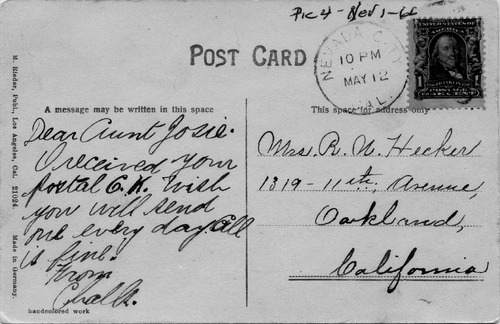 Pk 4 - Nev 1-66
POST CARD
NEVADA CITY
10 PM
MAY 12
CAL.
UNITED STATES OF AMERICA
1
POSTAGE
A message may be written in this space
This space for address only
Dear Aunt Josie.
I received your
postal O.K. Wish
you will send
one every day. all
is fine.
From
Mrs. R. W. Hecker
1319-11th, Avenue,
Oakland,
California
handcolored work
M. Rieder, Publ., Los Angeles, Cal. 21024. Made in Germany.